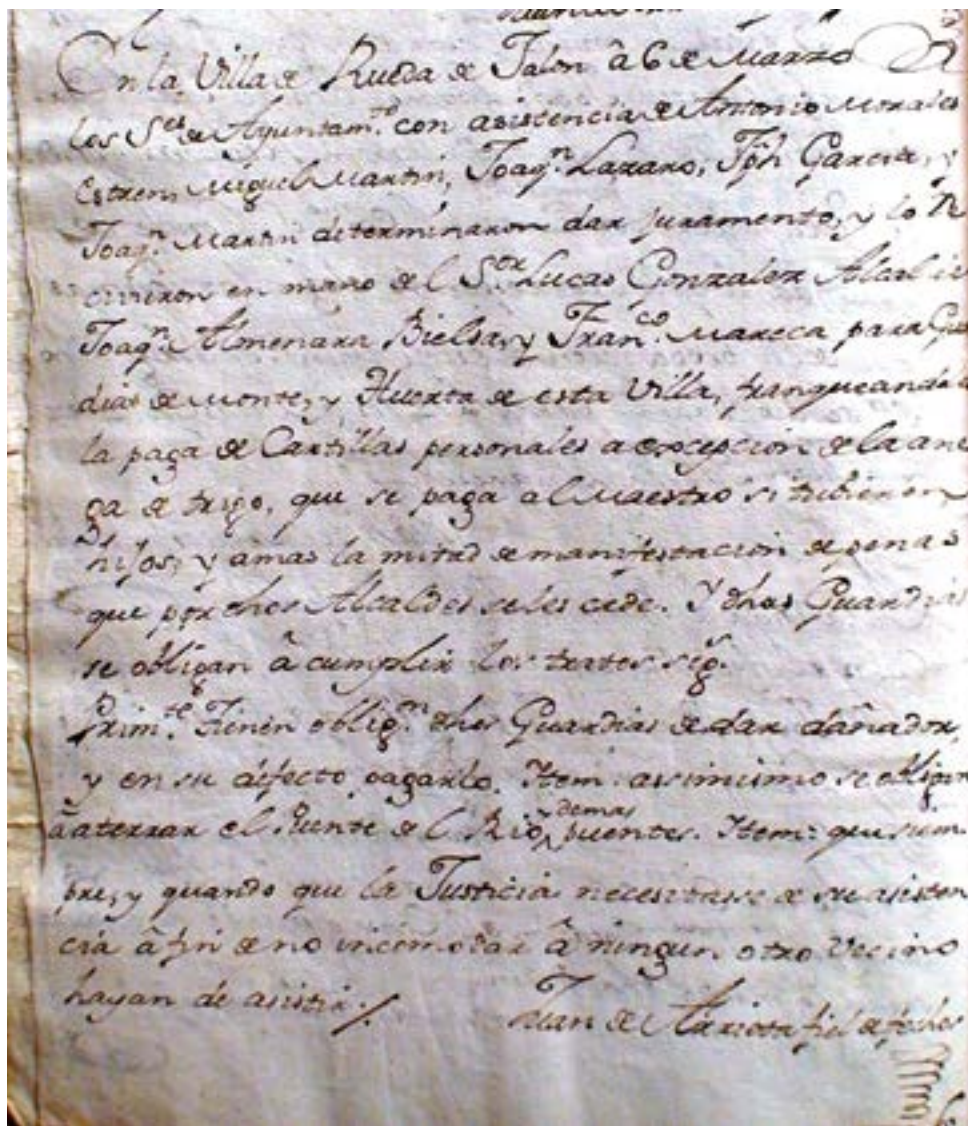 En la Villa de Rueda de Jalon â 6 de Marzo
los S.res de Ayuntam.to con asistencia de Antonio Morales
Estren, Miguel Martin, Joaq.n Lazaro, Jph Garcia, y
Joaq.n Martin determinaron dar juramento, y lo R
civieron en mano del S.or Lucas Gonzalez Alcalde
Joaq.n Almenara Bielsa, y Fran.co Mareca para Guar
dias de Monte, y Huerta de esta Villa, franqueandoles
la paga de Cartillas personales a excepcion de la ane
ga de trigo, que se paga al Maestro si tubieren
hijos, y amas la mitad de manifestacion de penas
que por dhos Alcaldes se les cede. Y dhos Guardias
se obligan â cumplir los tratos sig.
Prim.te Tienen oblig.n dhos Guardias de dar dañador,
y en su defecto pagarlo. Item: assimismo se obligan
â aterrar el Puente del Rio, demas puentes. Item: que siem
pre, y quando que la Justicia necesitasse de su asisten
cia â fin de no incomodar â ningun otro Vecino
hayan de asistir./.
Juan de Ariota fiel de fechos